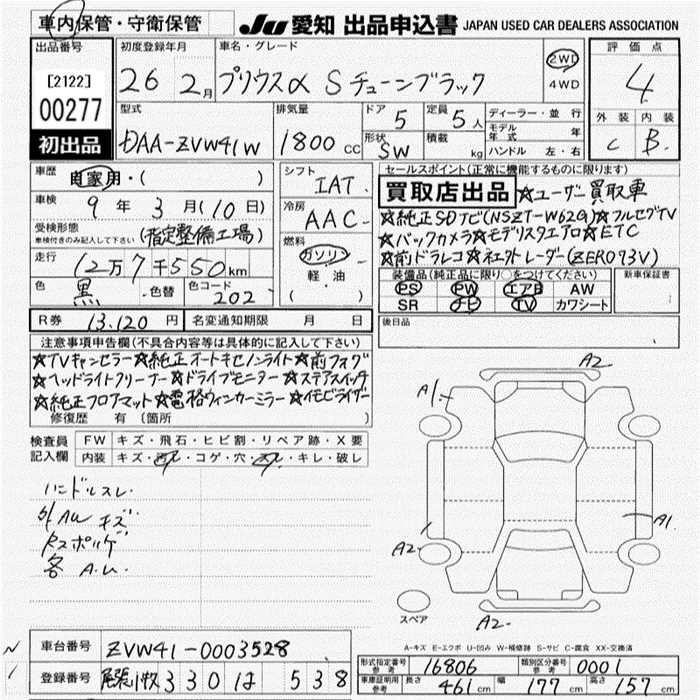 車内保管・守衛保管
JU 愛知 出品申込書 JAPAN USED CAR DEALERS ASSOCIATION
出品番号
[2122]
00277
初出品
初度登録年月
26 2月
車名・グレード
プリウスα Sチューンブラック
2WD
4WD
評価点
4
外装 内装
C B
型式
DAA-ZVW41W
排気量
1800 CC
ドア 5
定員 5人
形状 SW
積載 kg
ディーラー・並行
モデル年式 年
ハンドル 左・右
車歴
自家用・( )
車検
9年 3月(10日)
受検形態
車検付きのみ記入して下さい
(指定整備工場)
走行
12万7千550km
色 黒 ・色替
色コード 202
シフト
IAT
冷房
AAC
燃料
ガソリン
軽・油
( )
R券 13,120円
名変通知期限 月 日
セールスポイント(正常に機能するものに限ります)
買取店出品 ★ユーザー買取車
★純正SDナビ(NSZT-W62G)★フルセグTV
★バックカメラ★モデリスタエアロ★ETC
★前ドラレコ★ネエクトレーダー(ZERO73V)
装備品(純正品に限り○をつけてください)
PS PW エアB AW
SR ナビ TV カワシート
新車保証書
後日品
注意事項申告欄(不具合内容等は具体的に記入して下さい)
★TVキャンセラー★純正オートキセノンライト★前フォグ
★ヘッドライトクリーナー★ドライブモニター★ステアスイッチ
★純正フロアマット★電格ウィンカーミラー★イモビライザー
修復歴 有(箇所
検査員記入欄
FW キズ・飛石・ヒビ割・リペア跡・X要
内装 キズ・汚レ・コゲ・穴・スレ・キレ・破レ
ハンドルスレ
外AWキズ
各 A.U.
A2
A1
A1
A2
A2
スペア
A-キズ E-エクボ U-凹み W-補修跡 S-サビ C-腐食 XX-交換済
車台番号 ZVW41-0003528
登録番号 尾張小牧 330 は 538
型式指定番号 参考 16806
類別区分番号 参考 0001
車庫証明用 参考 長さ 461cm 幅 177cm 高さ 157cm